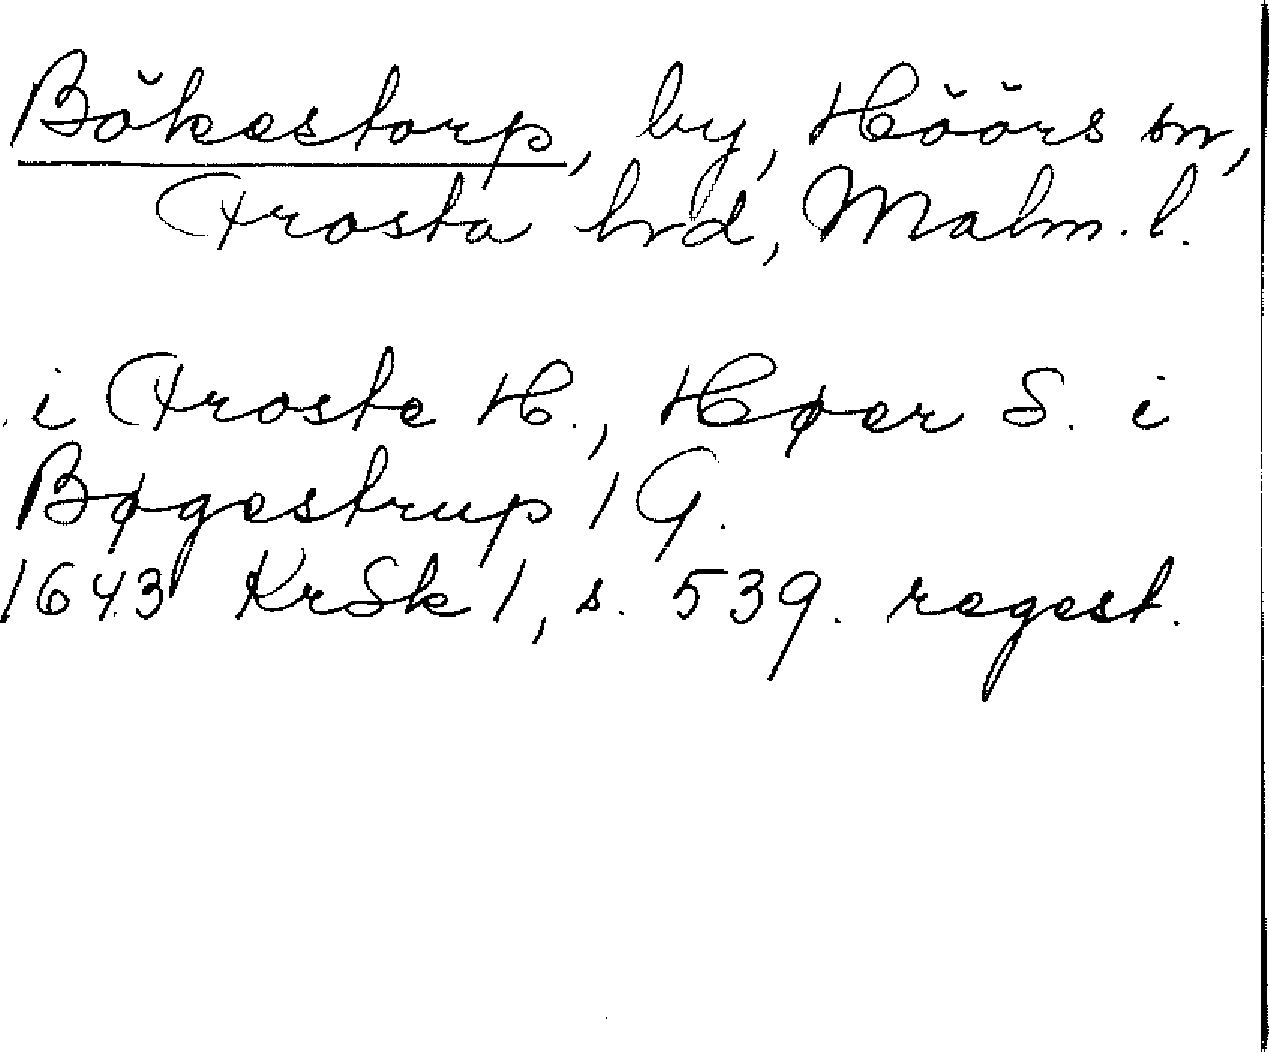 Bökestorp, by, Höörs sn,
Frosta hrd, Malm. l.
i Froste H., Høer S. i
Bøgestrup 1 G.
1643 KrSk 1, s. 539. regest.